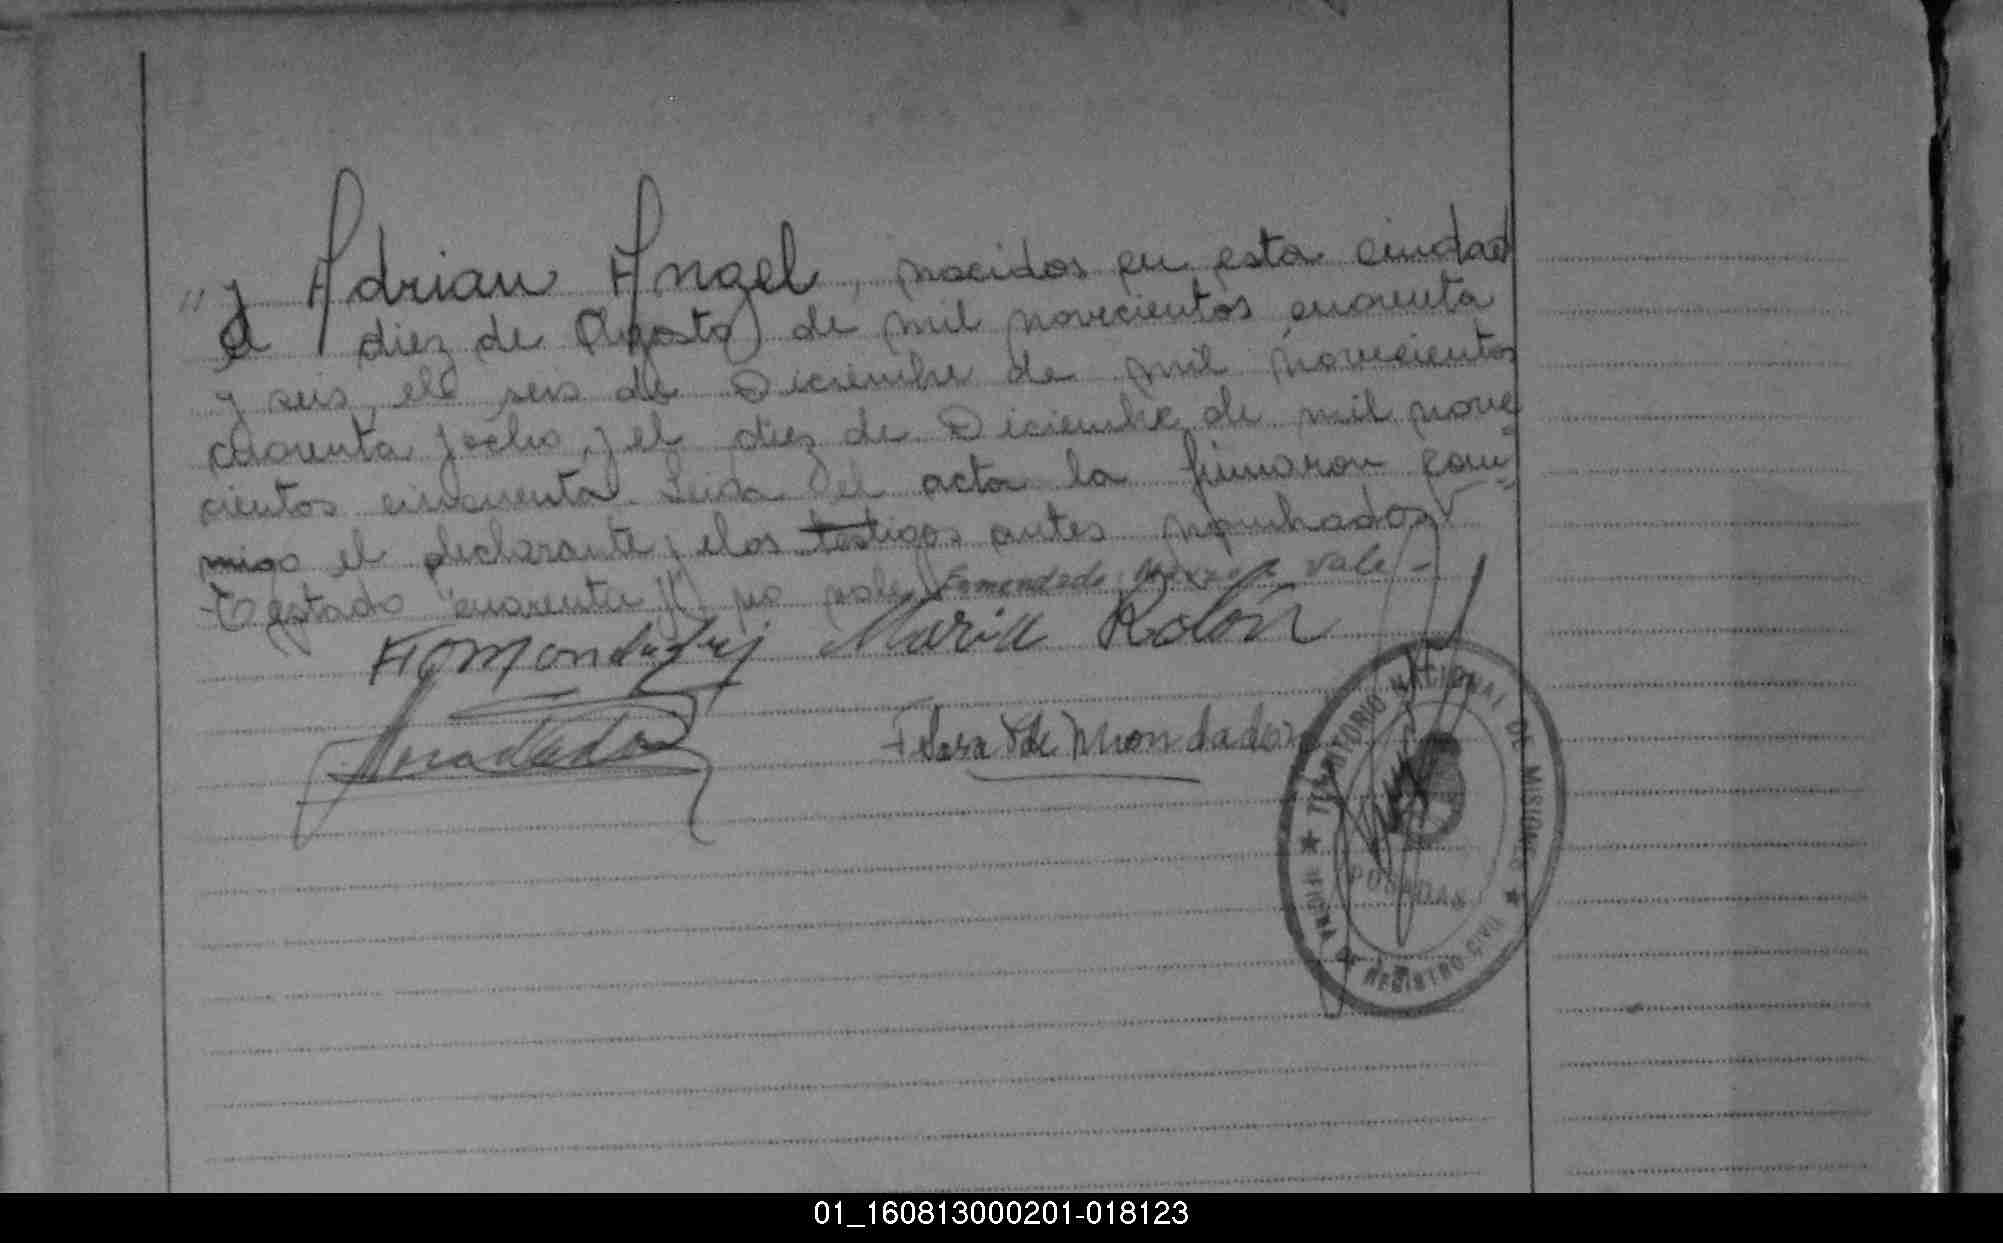 " y Adrian Angel, nacidos en esta ciudad
el diez de Agosto de mil novecientos cuarenta
y seis, el seis de Diciembre de mil novecientos
cuarenta y ocho, y el diez de Diciembre de mil nove
cientos cincuenta. Leida el acta la firmaron con-
migo el declarante y los testigos antes nombrados
Testado "cuarenta y" no vale Enmendado vale -
Maria Rolón
de Mondador
TERRITORIO NACIONAL DE MISIONES
POSADAS
REGISTRO CIVIL
01_160813000201-018123